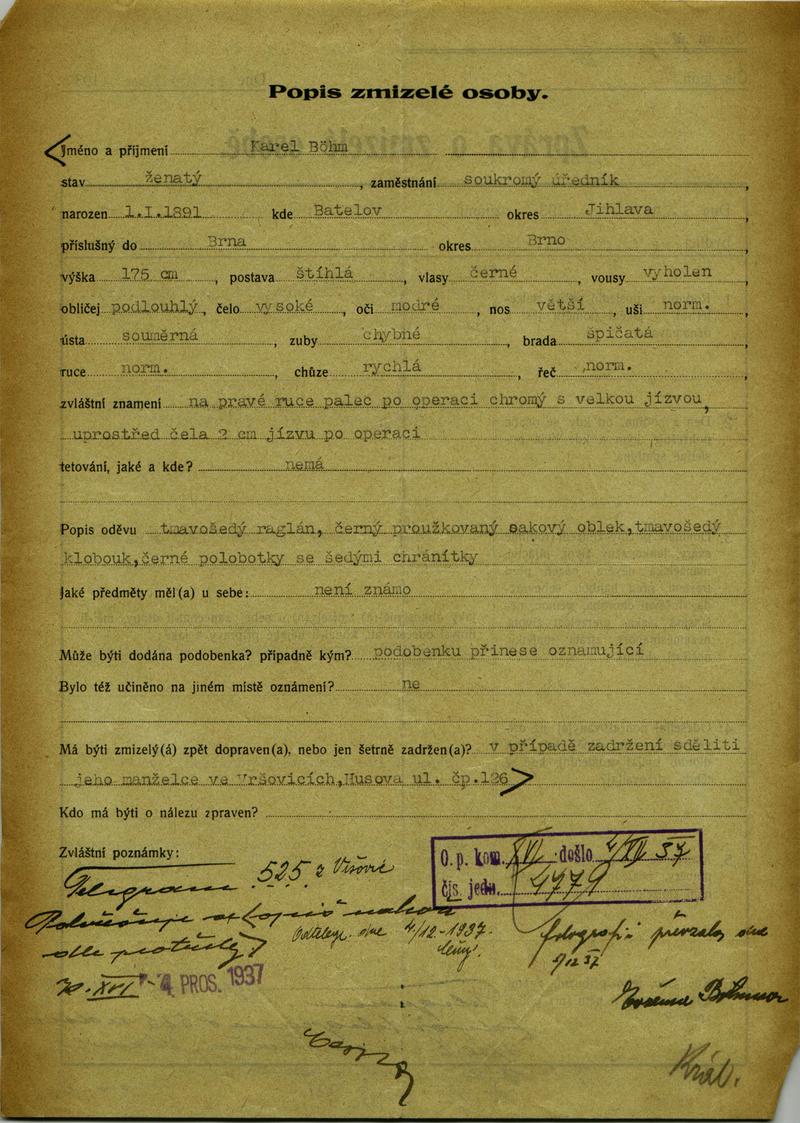 Popis zmizelé osoby.
Jméno a příjmení Karel Böhm
stav ženatý, zaměstnání soukromý úředník,
narozen 1.I.1891 kde Batelov okres Jihlava,
příslušný do Brna okres Brno,
výška 175 cm, postava štíhlá, vlasy černé, vousy vyholen
obličej podlouhlý, čelo vysoké, oči modré, nos větší, uši norm.
ústa souměrná, zuby chybné, brada špičatá
ruce norm., chůze rychlá, řeč norm.
zvláštní znamení na pravé ruce palec po operaci chromý s velkou jízvou,
uprostřed čela 2 cm jízvu po operaci
tetování, jaké a kde? nemá
Popis oděvu tmavošedý raglán, černý proužkovaný sakový oblek,tmavošedý
klobouk,černé polobotky se šedými chránítky
Jaké předměty měl(a) u sebe: není známo
Může býti dodána podobenka? případně kým? podobenku přinese oznamující
Bylo též učiněno na jiném místě oznámení? ne
Má býti zmizelý(á) zpět dopraven(a), nebo jen šetrně zadržen(a)? v případě zadržení sděliti
jeho manželce ve Vršovicích,Husova ul. čp.126
Kdo má býti o nálezu zpraven?
Zvláštní poznámky:
O. p. kom. XVI došlo 4/XII 37
čís. jedn. 4979
Telegram 525 z Vršovic
dne 4/12-1937.
fotografii převzala dne
XVI - 4. PROS. 1937
Král.